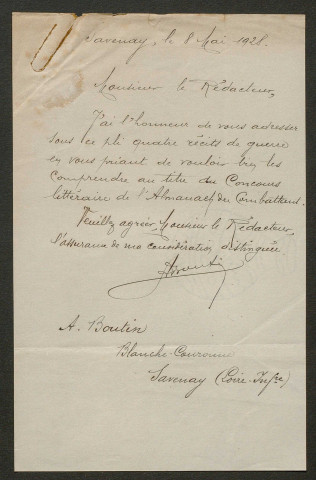 Savenay, le 8 Mai 1928.
Monsieur le Rédacteur,
J'ai l'honneur de vous adresser
sous ce pli quatre récits de guerre
en vous priant de vouloir bien les
comprendre au titre du Concours
littéraire de l'Almanach du Combattant.
Veuillez agréer, Monsieur le Rédacteur,
l'assurance de ma considération distinguée
ABoutin
A. Boutin
Blanche-Couronne
Savenay (Loire-Infre)